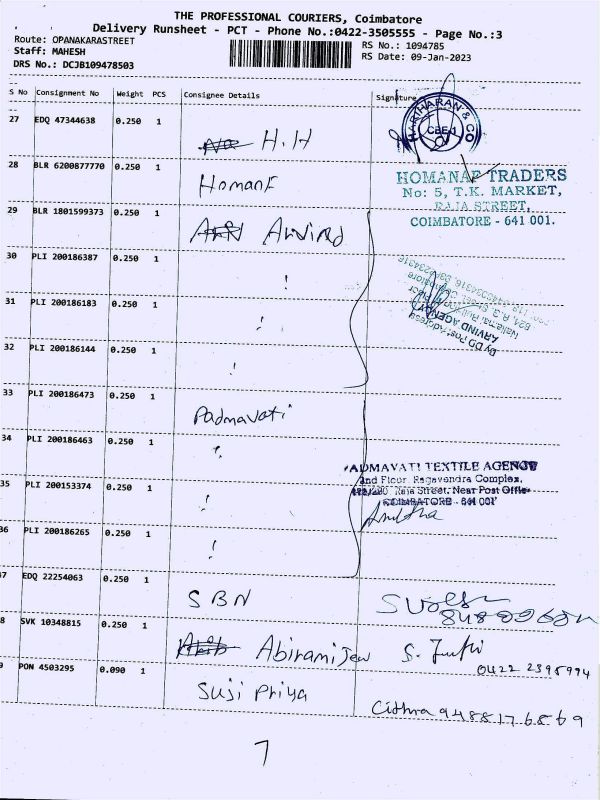 THE PROFESSIONAL COURIERS, Coimbatore
Delivery Runsheet - PCT - Phone No.:0422-3505555 - Page No.:3
Route: OPANAKARASTREET
RS No.: 1094785
Staff: MAHESH
RS Date: 09-Jan-2023
DRS No.: DCJB109478503
S No Consignment No Weight PCS Consignee Details Signature
27 EDQ 47344638 0.250 1 H.H
HARIHARAN & CO
CBE-1
28 BLR 6200877770 0.250 1 HomanF
HOMANAF TRADERS
No: 5, T.K. MARKET,
RAJA STREET,
COIMBATORE - 641 001.
29 BLR 1801599373 0.250 1
30 PLI 200186387 0.250 1 !
31 PLI 200186183 0.250 1 !
ARVIND AGENC
32 PLI 200186144 0.250 1 !
33 PLI 200186473 0.250 1 Padmavati
34 PLI 200186463 0.250 1
ADMAVATI TEXTILE AGENCY
2nd Floor, Ragavendra Complex,
Raja Street, Near Post Office
COIMBATORE - 641 001
35 PLI 200153374 0.250 1 !
36 PLI 200186265 0.250 1 !
7 EDQ 22254063 0.250 1 SBN
8 SVK 10348815 0.250 1 Abirami Jew
0422 2395994
9 PON 4503295 0.090 1 Suji Priya
Cithra 9488176869
7